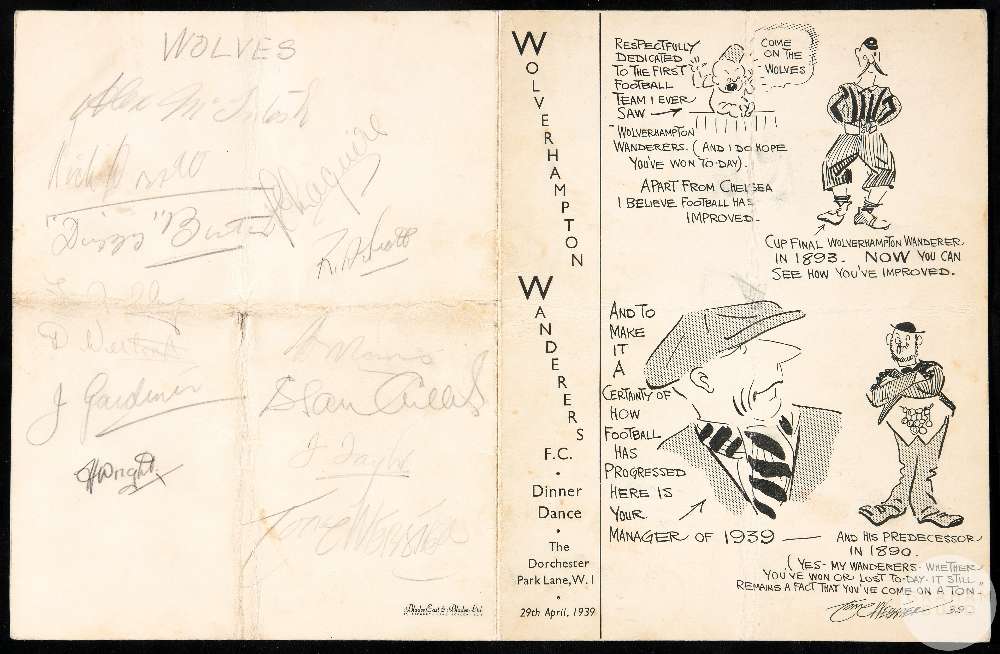 WOLVES
Alex McIntosh
Dick Dorsett
R Maguire
"Dizzy" Burton
L. A. Scott
J Gardiner
H Wright
Stan Cullis
J Taylor
Tom Webster
WOLVERHAMPTON
WANDERERS
F.C.
•
Dinner
Dance
•
The
Dorchester
Park Lane, W.1
•
29th April, 1939
RESPECTFULLY
DEDICATED
TO THE FIRST
FOOTBALL
TEAM I EVER
SAW
WOLVERHAMPTON
WANDERERS. (AND I DO HOPE
YOU'VE WON TO-DAY).
APART FROM CHELSEA
I BELIEVE FOOTBALL HAS
IMPROVED.
COME
ON THE
WOLVES
CUP FINAL WOLVERHAMPTON WANDERER
IN 1893. NOW YOU CAN
SEE HOW YOU'VE IMPROVED.
AND TO
MAKE
IT
A
CERTAINTY OF
HOW
FOOTBALL
HAS
PROGRESSED
HERE IS
YOUR
MANAGER OF 1939 —
AND HIS PREDECESSOR
IN 1890.
(YES - MY WANDERERS - WHETHER
YOU'VE WON OR LOST TO-DAY - IT STILL
REMAINS A FACT THAT YOU'VE COME ON A TON-
Tom Webster